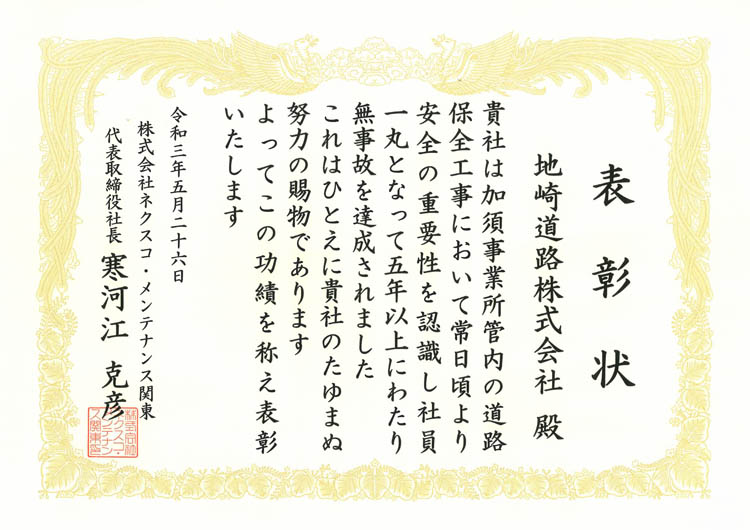 表彰状
地崎道路株式会社 殿
貴社は加須事業所管内の道路
保全工事において常日頃より
安全の重要性を認識し社員
一丸となって五年以上にわたり
無事故を達成されました
これはひとえに貴社のたゆまぬ
努力の賜物であります
よってこの功績を称え表彰
いたします
令和三年五月二十六日
株式会社ネクスコ・メンテナンス関東
代表取締役社長 寒河江 克彦